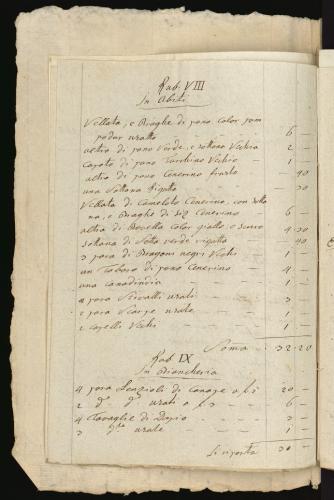 Rub. VIII
In Abiti
Vellata, e Braghe di pano color pom
podur usatto - 6 -
altra di pano verde, e sottana Vechia 2 -
Capoto di pano Turchino Vechio - 1 -
altro di pano Cenerino frusto - 40
una Sottana Rigatta - 30
Vellata di Cameloto Cenerino, con sotta
na, e Braghe di Cenerino - 6 -
altra di color giallo, e scuro 4 30
sottana di verde rigatta - 4 30
3 para di Bragoni negri Vechi - 1 -
un Tabaro di pano Cenerino - 4 -
una - 1 -
2 para Stivalli usati - 3 -
2 para Scarpe usate - 1 -
2 Capelli Vechi - 1 -
Soma - 32 - 20
Rub IX
In Biancheria
4 para Lenzioli di Canape a f 5 20 -
2 dº dº usati a f 3 - 6 -
4 Tovaglie di - 3 -
3 dte usate - 1 -
Si riporta 30 -